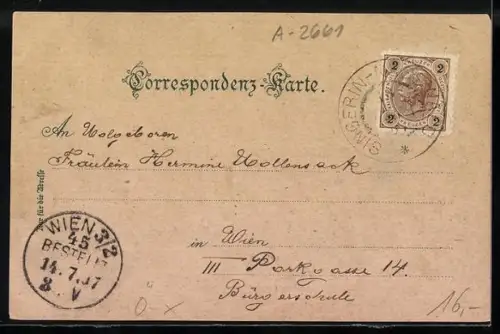 A-2661
Correspondenz-Karte.
2 2
2 2
An Wolgeboren
Fräulein Hermine Wollensack
in Wien
III Parkgasse 14.
Bürgerschule
Nur für die Adresse
WIEN 3/2
45
BESTELLT
14.7.97
8. V
16,-